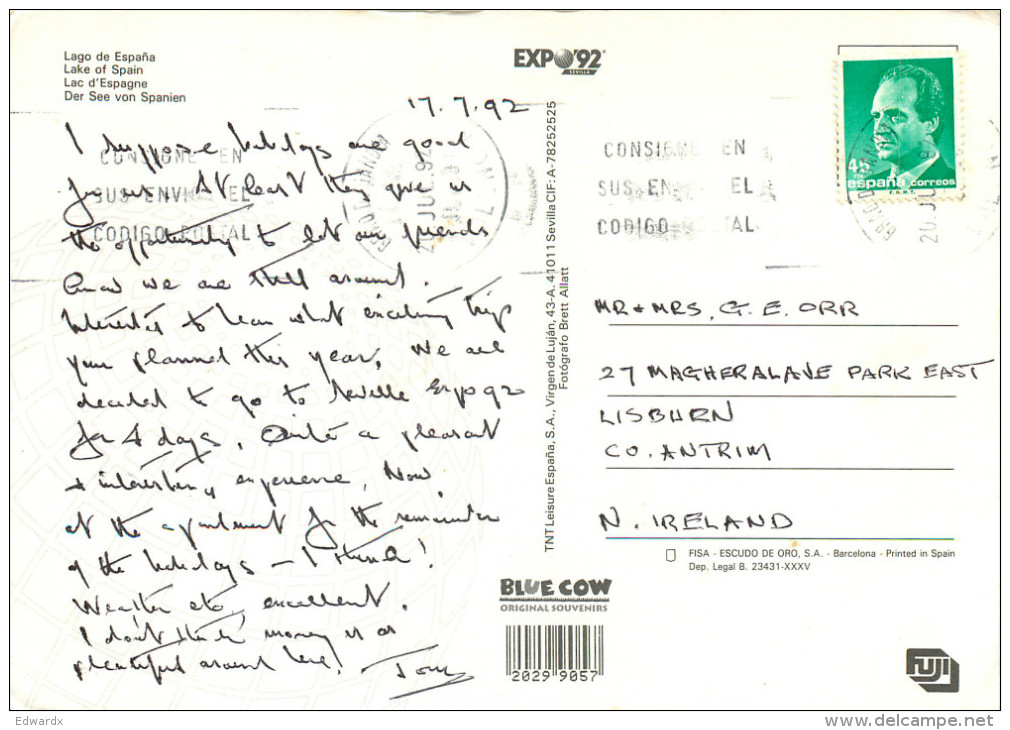 Lago de España
Lake of Spain
Lac d'Espagne
Der See von Spanien
EXPO'92
SEVILLA
17.7.92
I suppose holidays are good
for us. At least they give us
the opportunity to let our friends
know we are still around.
Interested to hear what exciting trip
you planned this year. We all
decided to go to Seville Expo 92
for 4 days. Quite a pleasant
+ interesting experience. Now
at the apartment for the remainder
of the holidays – I think!
Weather etc, excellent.
I don't think money is as
plentiful around here!
CONSIGNE EN
SUS ENVIOS EL
CODIGO POSTAL
TNT Leisure España, S.A., Virgen de Luján, 43-A. 41011 Sevilla CIF: A-78252525
Fotógrafo Brett Allatt
CONSIGNE EN
SUS ENVIOS EL
CODIGO POSTAL
45
españa correos
F.N.M.T.
MR + MRS. G. E. ORR
27 MAGHERALAVE PARK EAST
LISBURN
CO. ANTRIM
N. IRELAND
FISA - ESCUDO DE ORO, S.A. - Barcelona - Printed in Spain
Dep. Legal B. 23431-XXXV
BLUE COW
ORIGINAL SOUVENIRS
2029 9057
FUJI
Edwardx
delcampe.net